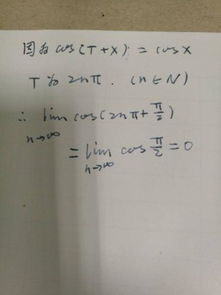 因为 cos(T+x) = cosx
T为 2nπ. (n∈N)
∴ lim cos(2nπ+π/2)
n→∞
= lim cos π/2 = 0
n→∞